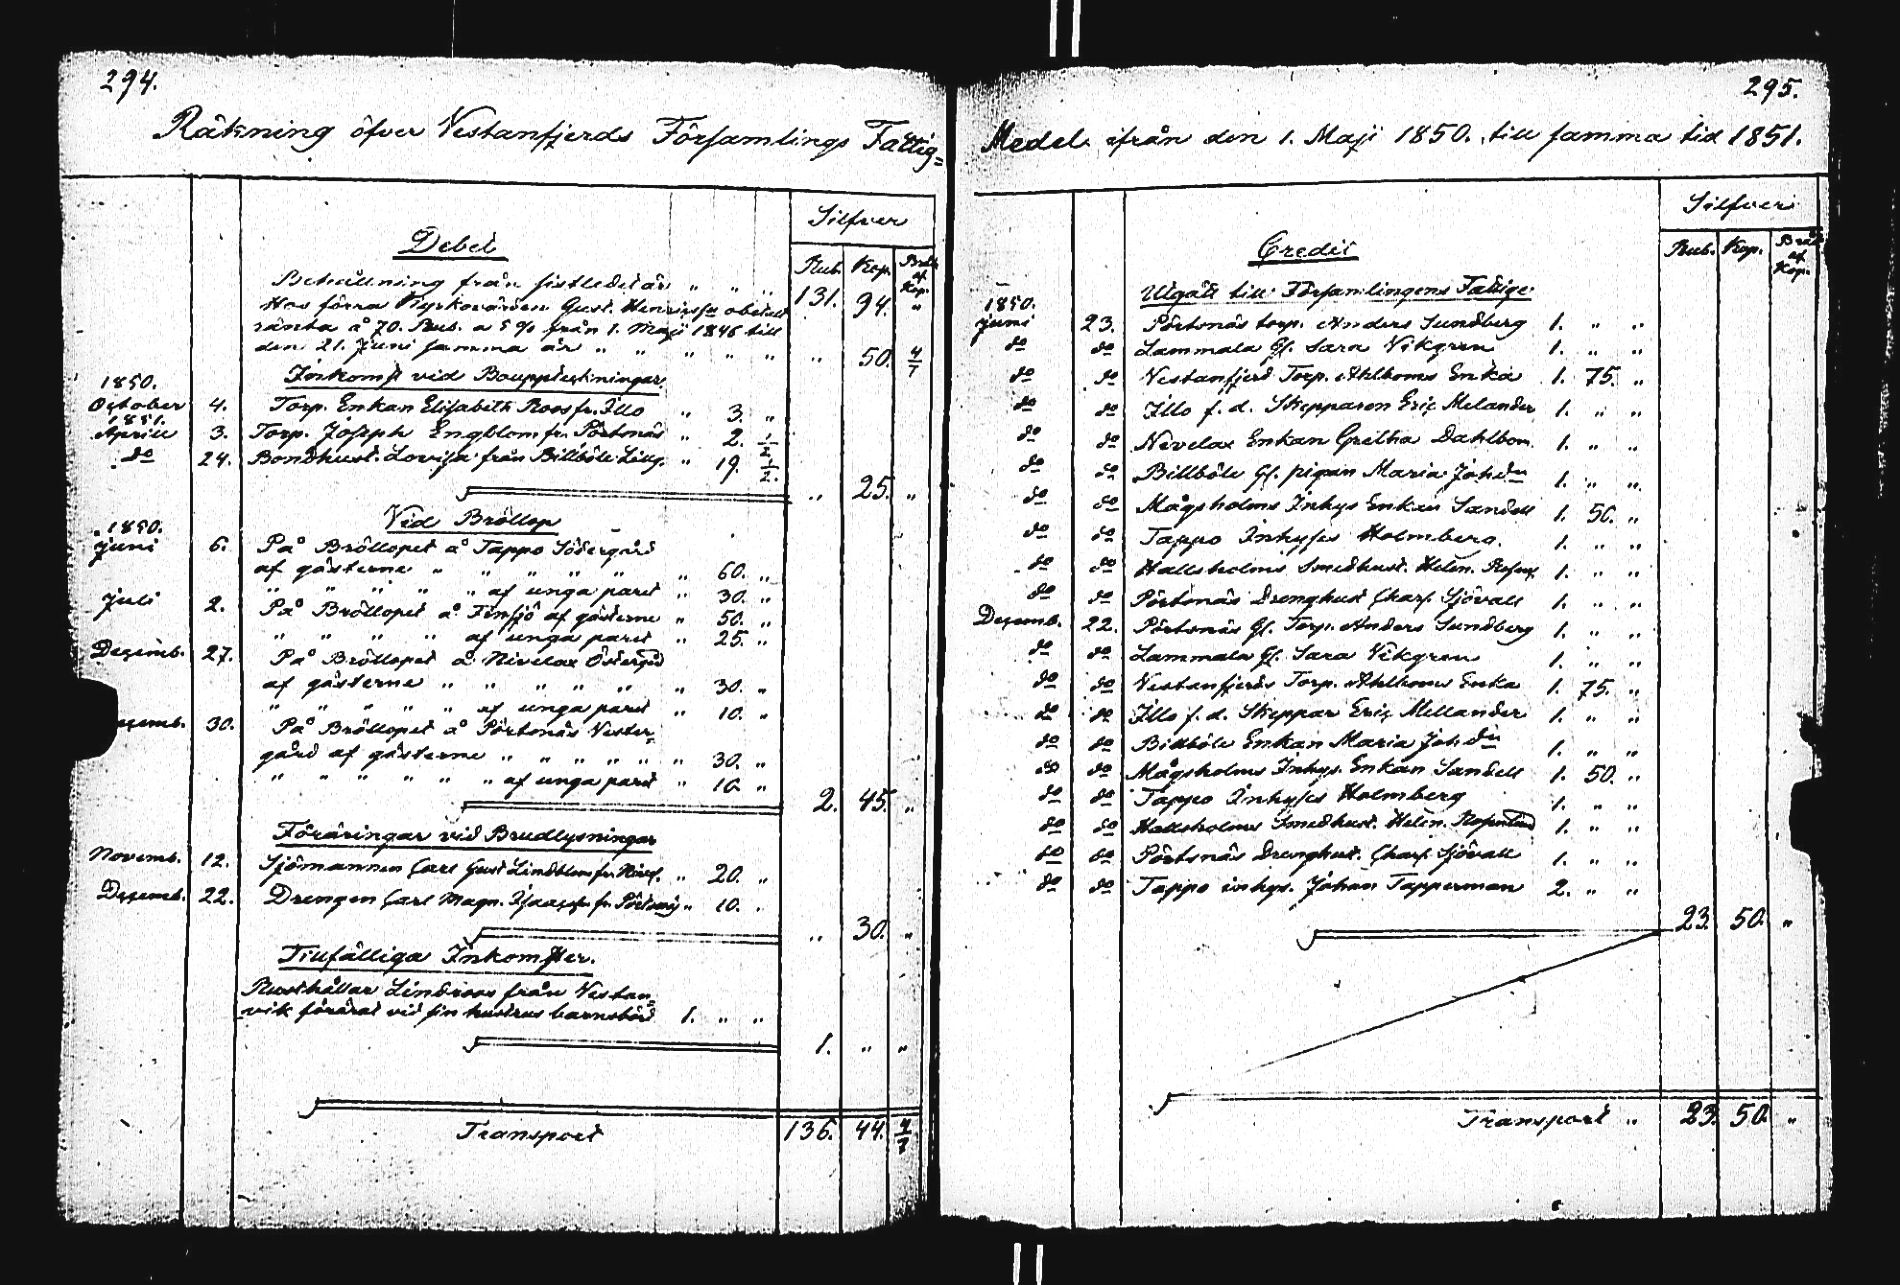 294.
Räkning öfver Vestanfjerds Församlings Fattig=
Silfver
Debet
Rub. Kop. Bråk af Kop.
Behållning från sistledet år " " " 131. 94. "
Hos förra Kyrkovärden Gust. Henricss obetalt
ränta å 70. Rub. a 5 % från 1. Maji 1846 till
den 21. Juni samma år " " " " " " 50. 4/7
Inkomst vid Bouppteckningar.
1850.
October 4. Torp. Enkan Elisabeth Roos fr. Illo " 3. "
1851.
Aprill 3. Torp. Joseph Engblom fr. Pörtsnäs " 2. 1/2
do 24. Bondhust. Lovisa från Billböle Lill. " 19. 1/2.
" 25. "
Vid Bröllop
1850.
Juni 6. På Bröllopet å Tappo Södergård
af gästerne " " " " " " 60. "
" " " " " af unga paret " 30. "
Juli 2. På Bröllopet å Finsjö af gästerne " 50. "
" " " " af unga paret " 25. "
Decemb. 27. På Bröllopet å Nivelax Östergrd
af gästerne " " " " " " 30. "
" " " " " af unga paret " 10. "
ecemb. 30. På Bröllopet å Pörtsnäs Vester=
gård af gästerne " " " " " " 30. "
" " " " " " af unga paret " 10. "
2. 45. "
Föräringar vid Brudlysningar
Novemb. 12. Sjömannen Carl Gust Lindblom fr. " 20. "
Decemb. 22. Drengen Carl Magn. Isaacss. fr. Pörtsnäs " 10. "
" 30. "
Tillfälliga Inkomster.
Rusthållar Lindroos från Vestan=
vik förärat vid sin hustrus barnsbörd 1. " "
1. " "
Transport 136. 44. 4/7
295.
Medel ifrån den 1. Maji 1850. till samma tid 1851.
Silfver
Credit
Rub. Kop. Bråk af Kop.
Utgått till Församlingens Fattige
1850.
Juni 23. Pörtsnäs torp. Anders Sundberg 1. " "
do do Lammala Gl. Sara Vikgren 1. " "
do do Vestanfjerd Torp. Ahlboms Enka 1. 75. "
do do Illo f. d. Skepparen Eric Melander 1. " "
do do Nivelax Enkan Gretha Dahlbom. 1. " "
do do Billböle Gl. pigan Maria Johdr 1. " "
do do Mågsholms Inhys Enkan Sandell 1. 50. "
do do Tappo Inhyses Holmberg. 1. " "
do do Hallsholms Smedhust. Helen. 1. " "
do do Pörtsnäs Drenghust Charl. Sjövall 1. " "
Decemb. 22. Pörtsnäs Gl. Torp. Anders Sundberg 1. " "
do do Lammala Gl. Sara Vikgren 1. " "
do do Vestanfjerds Torp. Ahlboms Enka 1. 75. "
do do Illo f. d. Skeppar Eric Mellander 1. " "
do do Billböle Enkan Maria Johdr 1. " "
do do Mågsholms Inhys. Enkan Sandell 1. 50. "
do do Tappo Inhyses Holmberg 1. " "
do do Hallsholms Smedhust. Helen. 1. " "
do do Pörtsnäs Drenghust. Charl. Sjövall 1. " "
do do Tappo inhys. Johan Tapperman 2. " "
23. 50. "
Transport " 23. 50. "